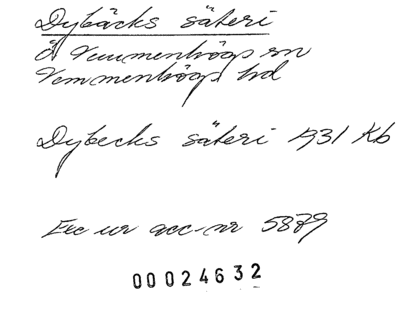 Dybäcks säteri
Ö Vemmenhögs sn
Vemmenhögs hd
Dybecks säteri 1931 Kb
Exc ur acc-nr 5879
00024632